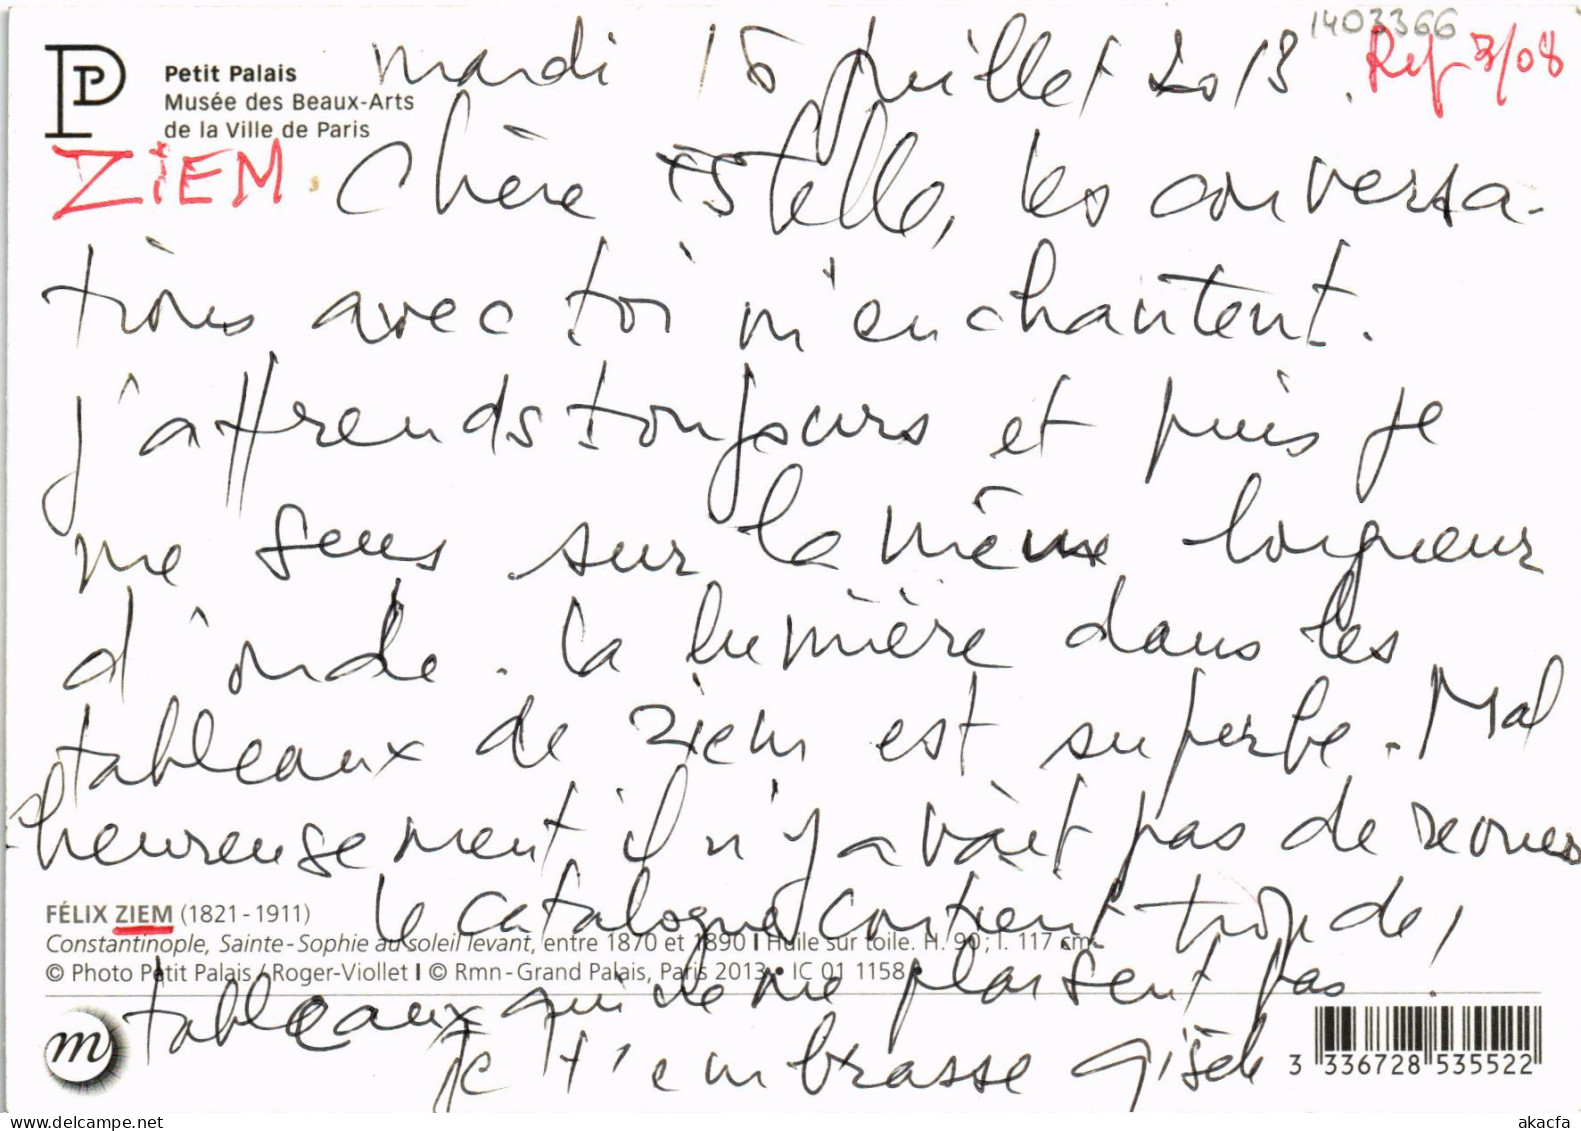 1403366
mardi 16 juillet 2013. Rép 3/08
PP
Petit Palais
Musée des Beaux-Arts
de la Ville de Paris
ZIEM
Chère Estelle, les conversa-
tions avec toi m'enchantent.
j'apprends toujours et puis je
me sens sur la même longueur
d'onde. la lumière dans les
tableaux de Ziem est superbe. Mal
heureusement il n'y avait pas de revues
le catalogue contient trop de
tableaux qui ne me plaisent pas !
je t'embrasse Gisèle
FÉLIX ZIEM (1821-1911)
Constantinople, Sainte-Sophie au soleil levant, entre 1870 et 1890 I Huile sur toile. H. 90 ; l. 117 cm.
© Photo Petit Palais / Roger-Viollet I © Rmn-Grand Palais, Paris 2013 • IC 01 1158
m
3 336728 535522
www.delcampe.net
akacfa